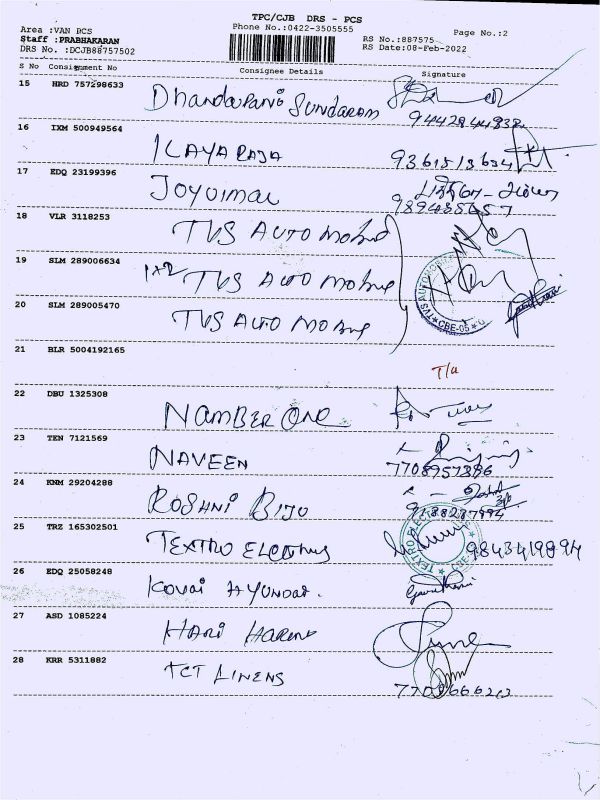 TPC/CJB DRS - PCS
Area :VAN PCS
Phone No.:0422-3505555
Page No.:2
Staff :PRABHAKARAN
RS No.:887575
DRS No. :DCJB88757502
RS Date:08-Feb-2022
S No Consignment No Consignee Details Signature
15 HRD 757298633 Dhandapani Sundaram
9442844838
16 IXM 500949564 ILAYARAJA
17 EDQ 23199396 Joyvimal
18 VLR 3118253 TVS AUTO Mobile
19 SLM 289006634 1x2 TVS AUTO Mobile
TVS AUTOMOBILE CBE-05
20 SLM 289005470 TVS AUTO Mobile
21 BLR 5004192165 T/a
22 DBU 1325308 NAMBER ONE
23 TEN 7121569 NAVEEN
7708957386
24 KNM 29204288 ROSHNI BIJU
25 TRZ 165302501 TEXTRO 9843419894
26 EDQ 25058248 Kovai HYUNDAI.
27 ASD 1085224 HARI HARAN
28 KRR 5311882 TCT LINENS